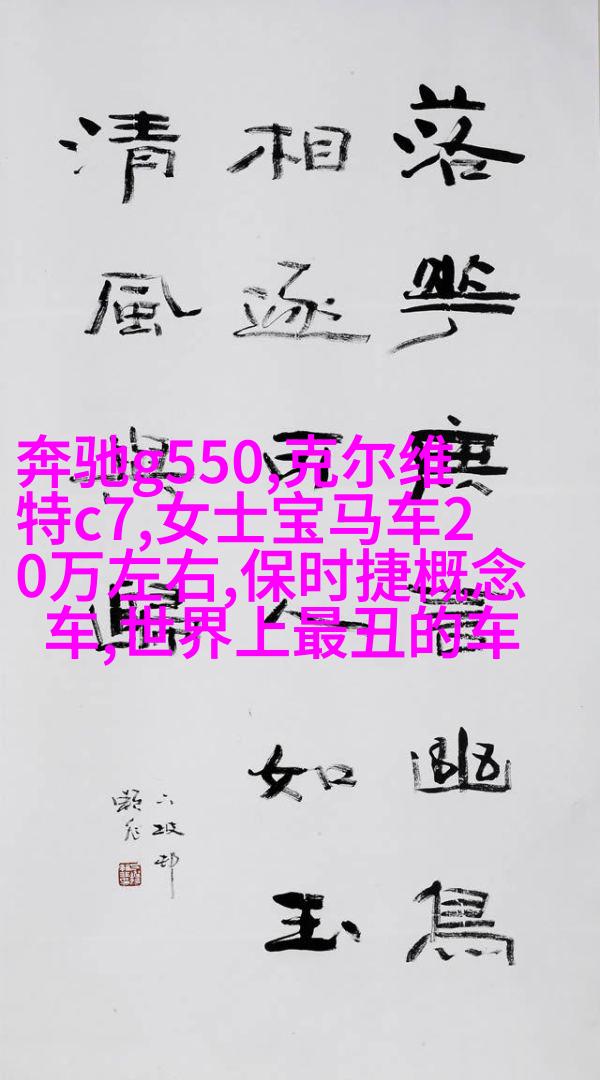 奔驰g550,克尔维
特c7,女士宝马车2
0万左右,保时捷概念
车,世界上最丑的车
落華言幽鳥
相逐可人如玉
清風與歸